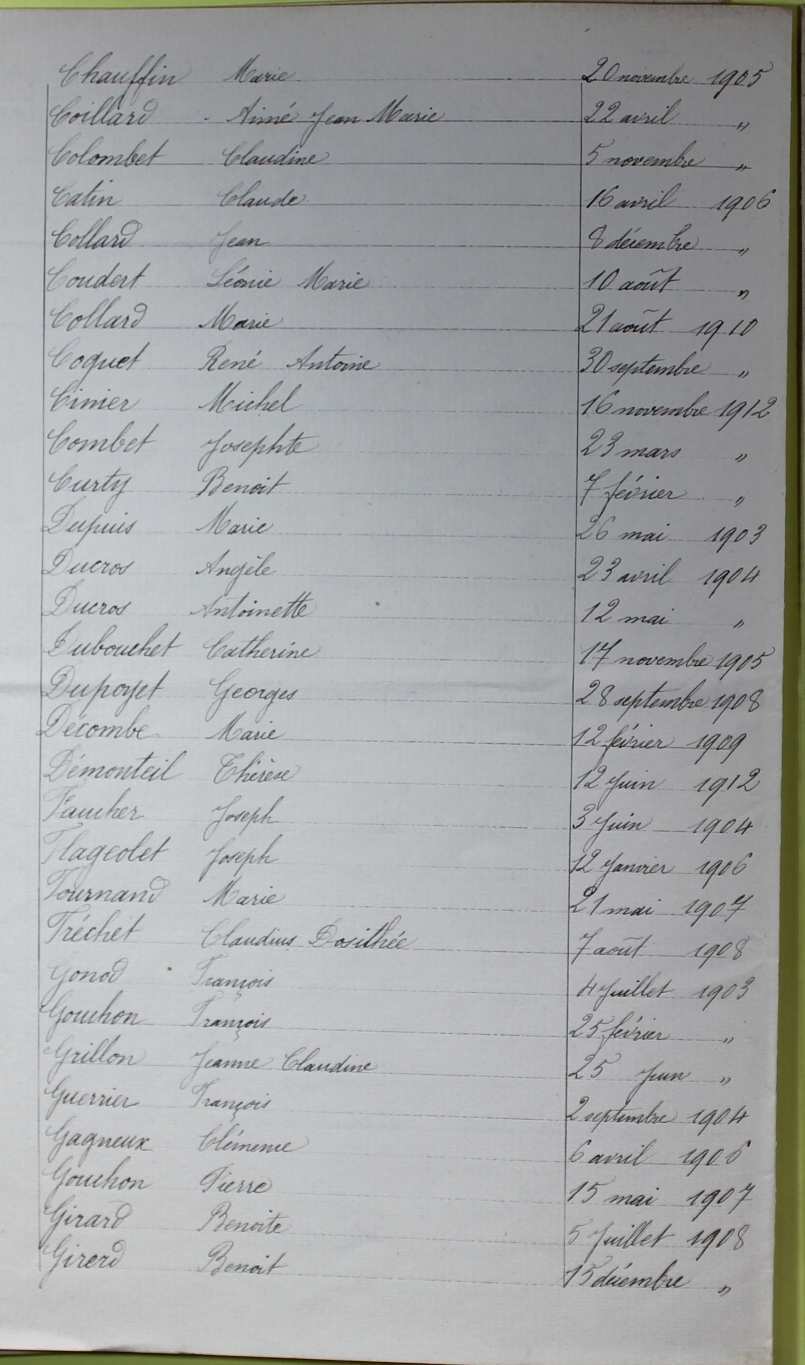 Chauffin Marie 20 novembre 1905
Coillard Aimé Jean Marie 22 avril "
Colombet Claudine 5 novembre "
Catin Claude 16 avril 1906
Collard Jean 8 décembre "
Coudert Léonie Marie 10 août "
Collard Marie 21 août 1910
Coquet René Antoine 30 septembre "
Cinier Michel 16 novembre 1912
Combet Josephte 23 mars "
Curty Benoit 7 février "
Dupuis Marie 26 mai 1903
Ducros Angèle 23 avril 1904
Ducros Antoinette 12 mai "
Dubouchet Catherine 17 novembre 1905
Dupoyet Georges 28 septembre 1908
Décombe Marie 12 février 1909
Démonteil Thérèse 12 Juin 1912
Faucher Joseph 3 Juin 1904
Flageolet Joseph 12 Janvier 1906
Fournand Marie 21 mai 1907
Fréchet Claudius Dosithée 7 août 1908
Gonod François 4 Juillet 1903
Gouchon François 25 février "
Grillon Jeanne Claudine 25 Juin "
Guerrier François 2 septembre 1904
Gagneux Clémence 6 avril 1906
Gouchon Pierre 15 mai 1907
Girard Benoite 5 Juillet 1908
Girerd Benoit 15 décembre "